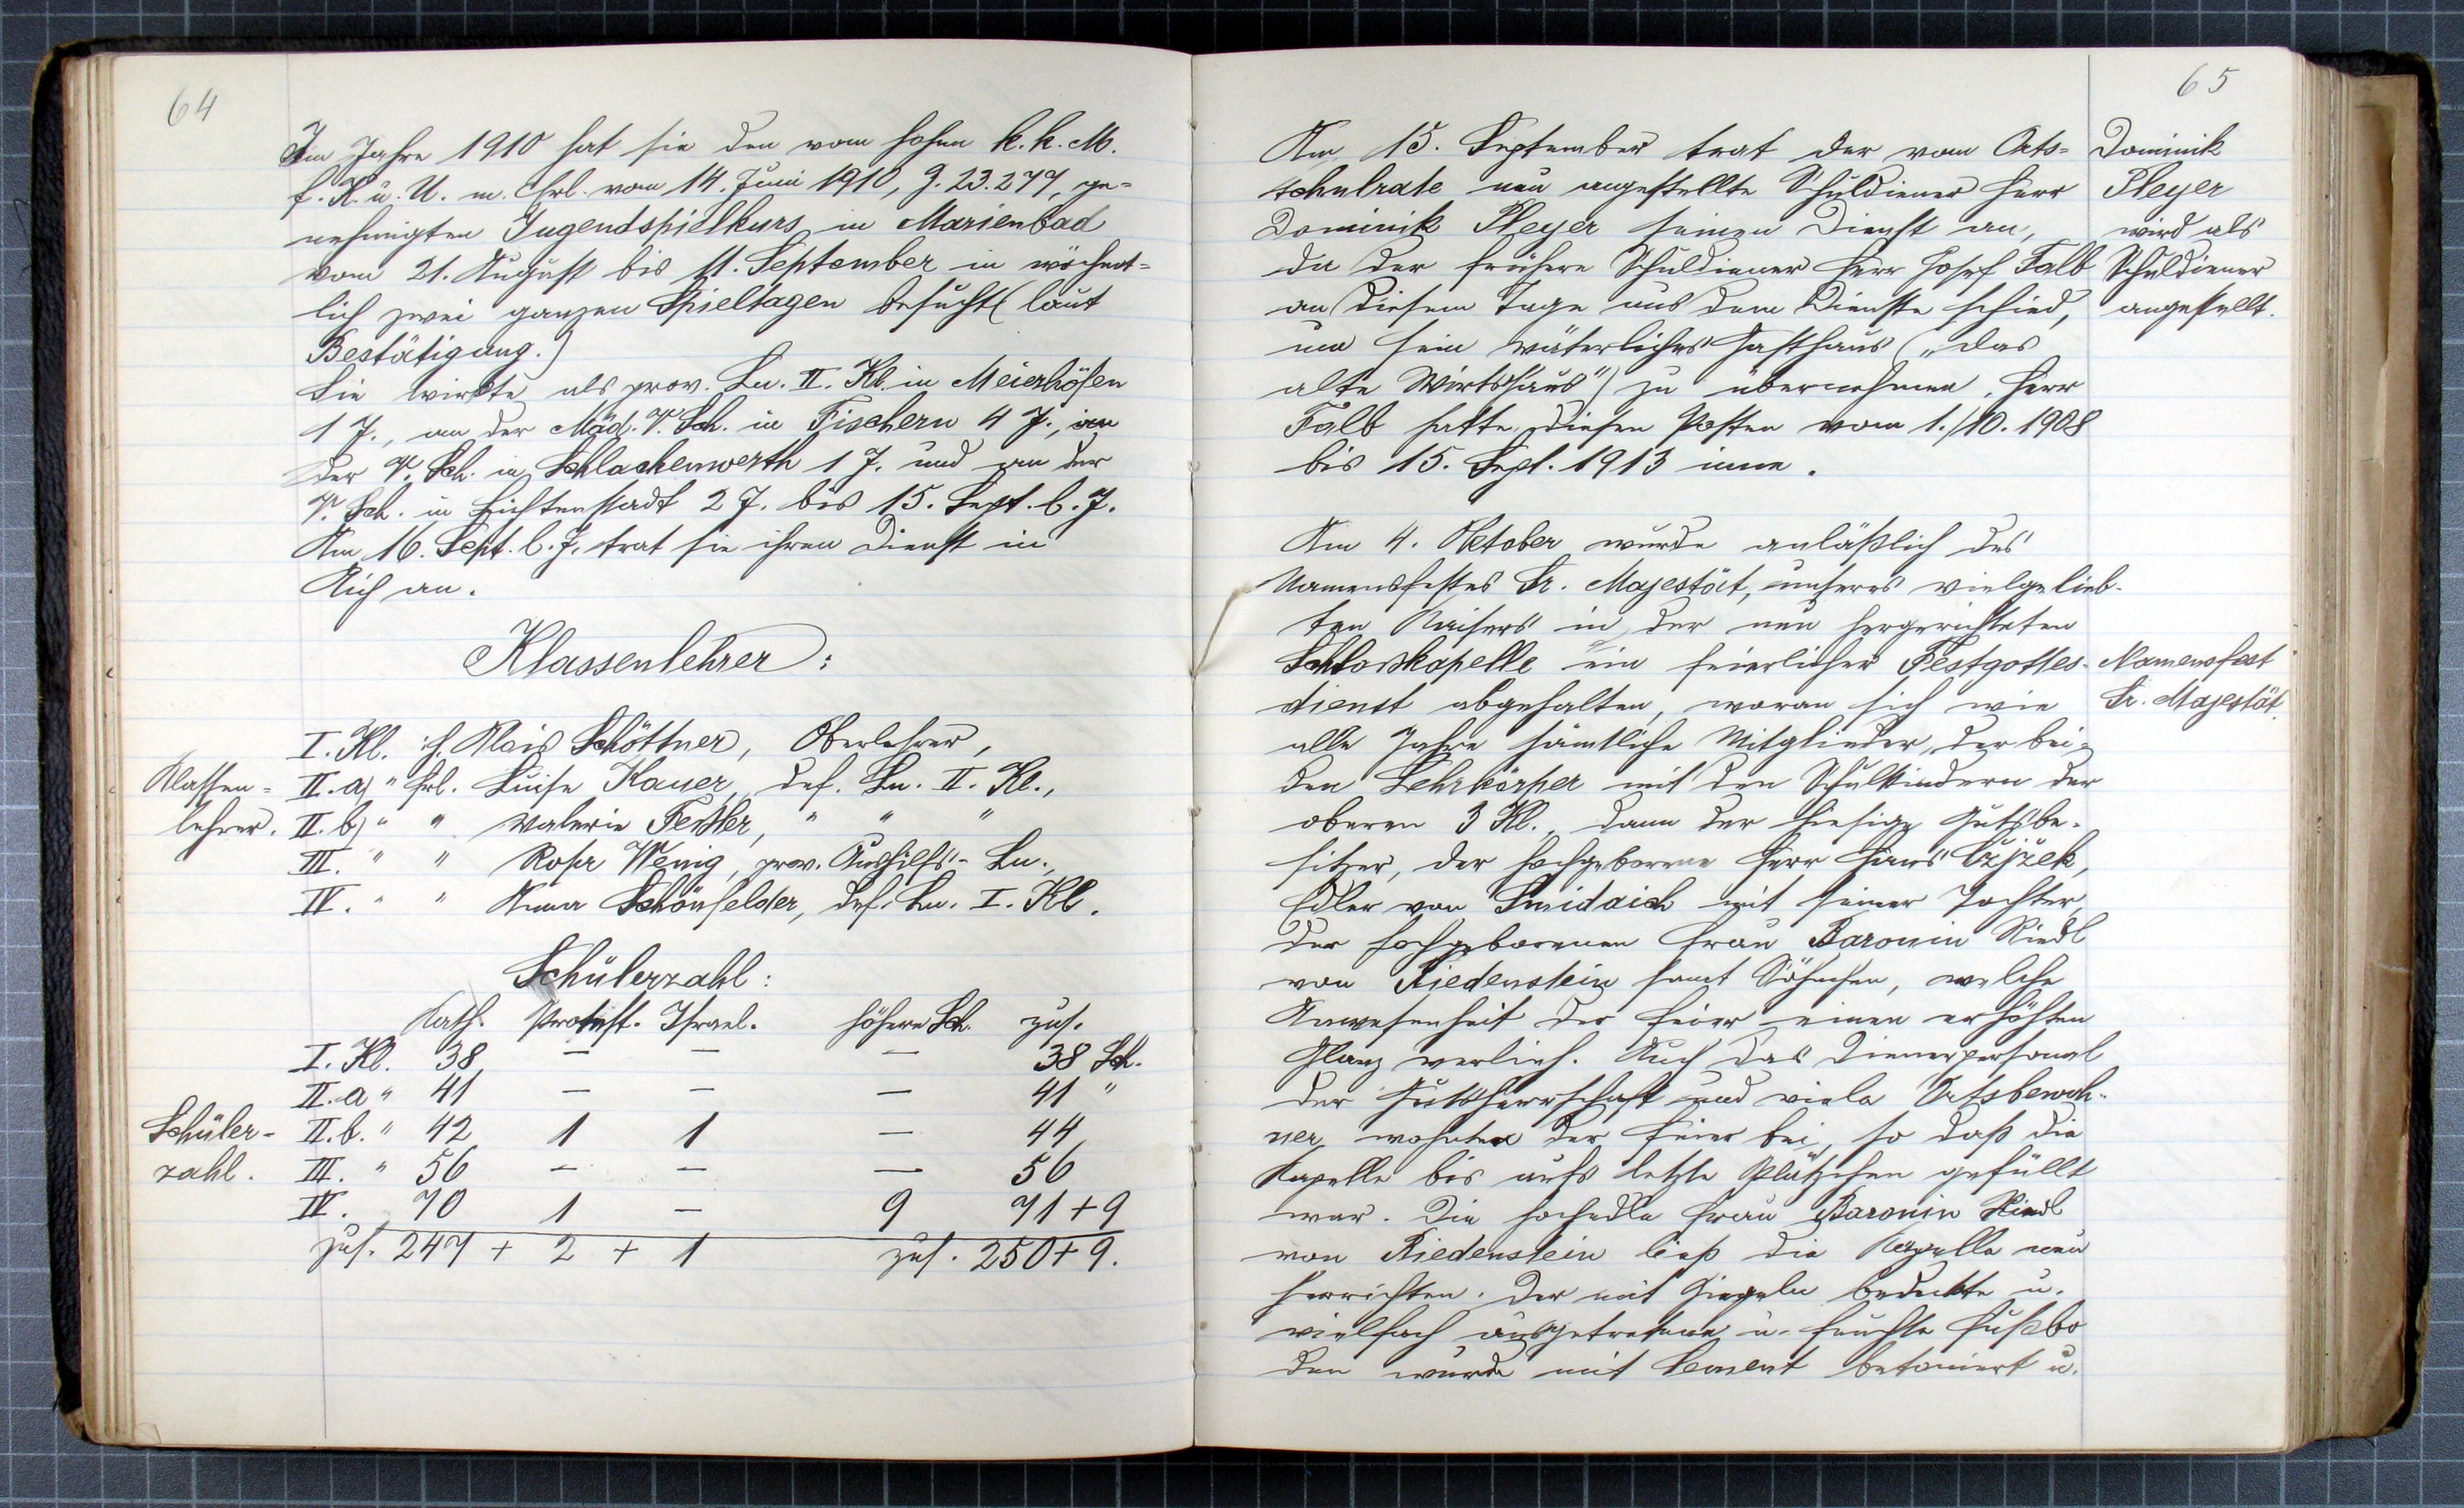 64
Im Jahre 1910 hat sie den vom hohen k. k. M.
f. K. u. U. m. Erl. vom 14. Juni 1910, Z. 23.277, ge-
nehmigten Jugendspielkurs in Marienbad
vom 21. August bis 11. September in wöchent-
lich zwei ganzen Spieltagen besucht (laut
Bestätigung.)
Sie wirkte als prov. Ln. II. Kl. in Meierhöfen
1 J., an der Mäd. V. Sch. in Fischern 4 J., an
der V. Sch. in Schlackenwerth 1 J. und an der
V. Sch. in Lichtenstadt 2 J. bis 15. Sept. l. J.
Am 16. Sept. l. J. trat sie ihren Dienst in
Aich an.
Klassenlehrer:
I. Kl. : H. Alois Schöttner, Oberlehrer,
Klassen- II. a) " Frl. Luise Kauer, def. Ln. II. Kl.,
lehrer. II. b) " " Valerie Feßler, " " "
III. " " Rosa Wenig, prov. Aushilfs-Ln.,
IV. " " Anna Schönfelder, def. Ln. I. Kl.
Schülerzahl:
Kath. Protest. Israel. höhere Sch. zus.
I. Kl. 38 — — — 38 Sch.
II. a " 41 — — — 41 "
Schüler- II. b. " 42 1 1 — 44
zahl. III. " 56 — — — 56
IV. 70 1 — 9 71 + 9
zus. 247 + 2 + 1 zus. 250 + 9.
65
Am 15. September trat der vom Orts-
schulrate neu angestellte Schuldiener Herr
Dominik Pleyer seinen Dienst an,
da der frühere Schuldiener Herr Josef Falb
an diesem Tage aus dem Dienste schied,
um sein väterliches Gasthaus („das
alte Wirtshaus") zu übernehmen. Herr
Falb hatte diesen Posten vom 1./10. 1908
bis 15. Sept. 1913 inne.
Dominik
Pleyer
wird als
Schuldiener
angestellt.
Am 4. Oktober wurde anläßlich des
Namensfestes Sr. Majestät, unseres vielgelieb-
ten Kaisers in der neu hergerichteten
Schlosskapelle ein feierlicher Festgottes-
dienst abgehalten, woran sich wie
alle Jahre sämtliche Mitglieder der bei-
den Lehrkörper mit den Schulkindern der
oberen 3 Kl., dann der hiesige Gutsbe-
sitzer, der hochgeborene Herr Hans Czjzek,
Edler von Smidaich mit seiner Tochter,
der hochgeborenen Frau Baronin Riedl
von Riedenstein samt Söhnchen, welche
Anwesenheit der Feier einen erhöhten
Glanz verlieh. Auch das Dienerpersonal
der Gutsherrschaft und viele Ortsbewoh-
ner wohnten der Feier bei, so daß die
Kapelle bis aufs letzte Plätzchen gefüllt
war. Die hochedle Frau Baronin Riedl
von Riedenstein ließ die Kapelle neu
herrichten. Der mit Ziegeln bedeckte u.
vielfach ausgetretene u. feuchte Fußbo
den wurde mit Cement betoniert u.
Namensfest
Sr. Majestät.